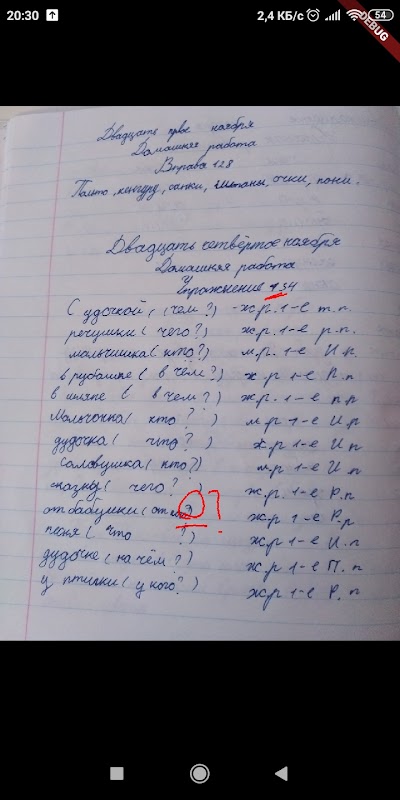 20:30
2,4 КБ/с
54
DEBUG
Двадцать прве ноября
Домашняя работа
Вправа 128
Пальто, кенгуру, санки, штаны, очки, пони.
Двадцать четвёртое ноября
Домашняя работа
Упражнение 134
С удочкой, (чем?) -ж.р. 1-е т.п.
речушки (чего?) ж.р. 1-е р.п.
мальчишка (кто?) м.р. 1-е И.п.
в рубашке (в чём?) ж.р 1-е П.п
в шляпе (в чём?) ж.р. 1-е п.п
Мальчонка (кто?) м.р 1-е И.п
дудочка (что?) ж.р 1-е И п
Соловушка (кто?) м.р 1-е И.п
(чего?) ж.р. 1-е Р.п
от бабушки (от кого?) ж.р 1-е Р.р
О?
песня (что?) ж.р 1-е И.п
дудочке (на чём?) ж.р 1-е П.п
у птички (у кого?) ж.р 1-е Р.п